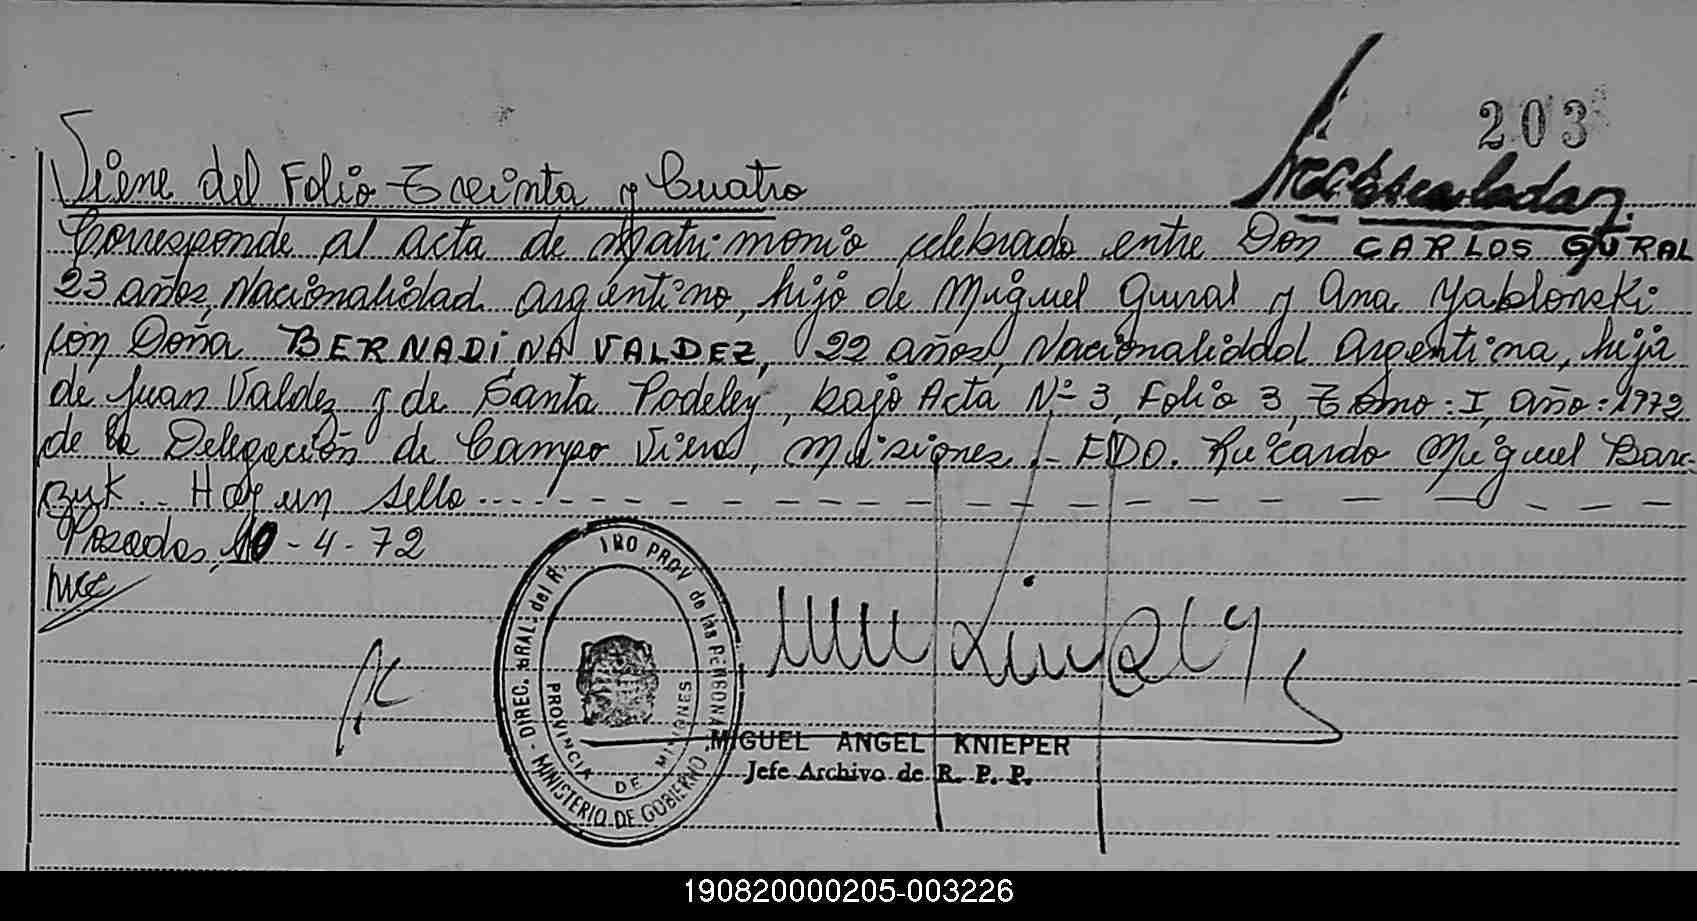 203
Viene del Folio Treinta y Cuatro
Corresponde al acta de Matrimonio celebrado entre Don CARLOS GURAL
23 años, Nacionalidad argentino, hijo de Miguel Gural y Ana Yablonski
con Doña BERNADINA VALDEZ, 22 años, Nacionalidad Argentina, hija
de Juan Valdez y de Santa Podeley, bajo Acta Nº 3, Folio 3, Tomo: I, año: 1972
de la Delegación de Campo Viera, Misiones.- FDO. Ricardo Miguel Barc-
zuk.. Hay un sello
Posadas, 10-4-72
DIREC. GRAL. del R. PROV de las PERSONAS - MINISTERIO DE GOBIERNO
PROVINCIA DE MISIONES
MIGUEL ANGEL KNIEPER
Jefe Archivo de R. P. P.
190820000205-003226